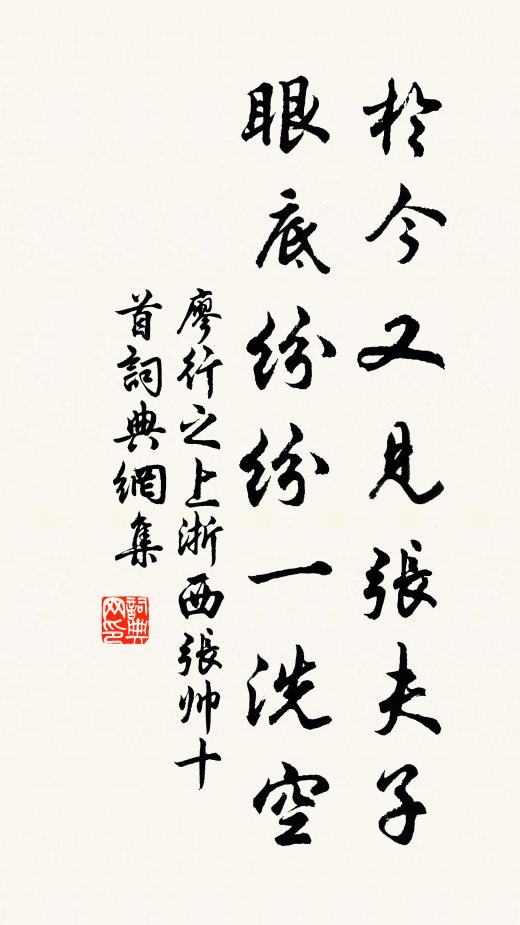 於今又見張夫子
眼底紛紛一洗空
廖行之上浙西張帅十
首詞典網集
詞典
网印